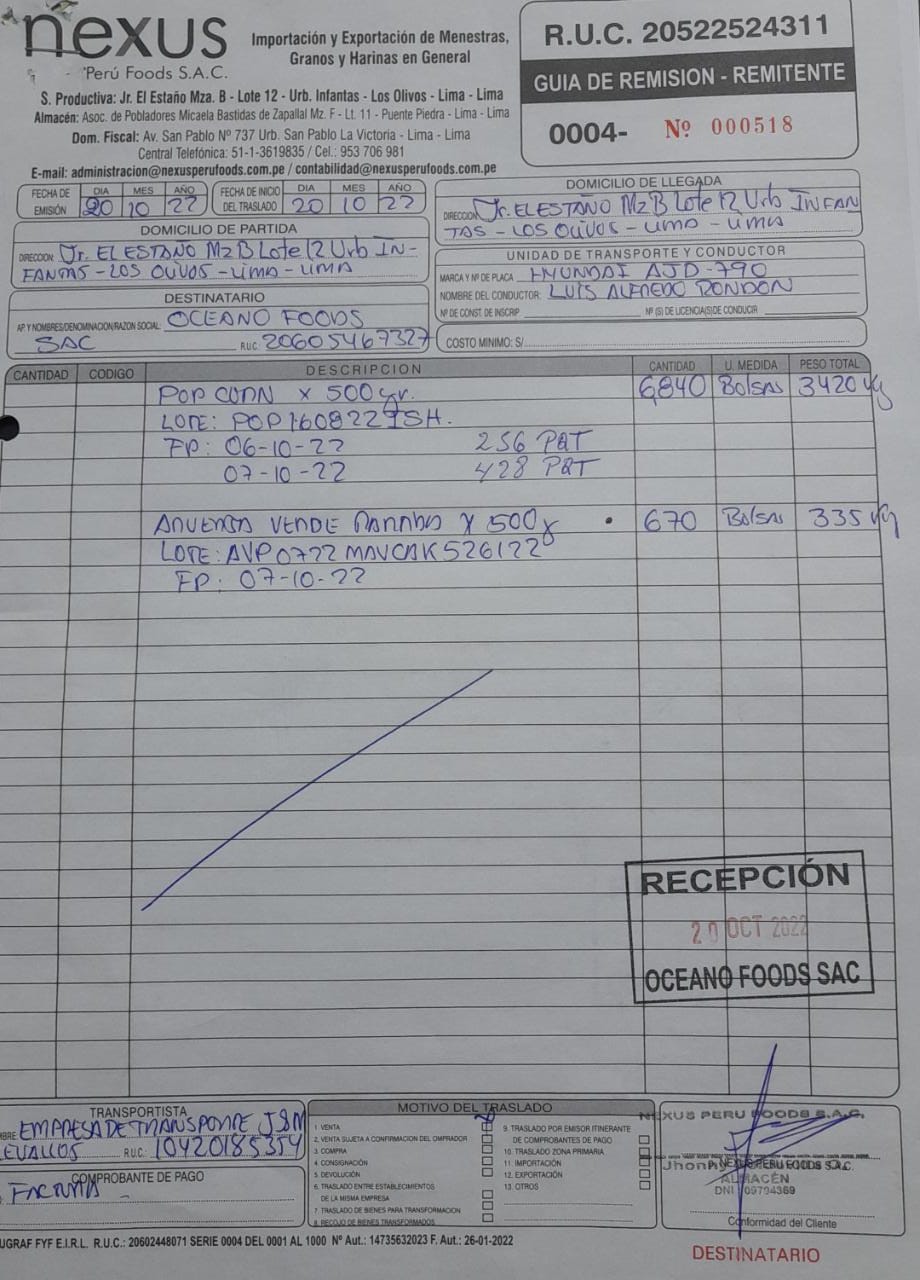 nexus
Perú Foods S.A.C.
Importación y Exportación de Menestras,
Granos y Harinas en General
S. Productiva: Jr. El Estaño Mza. B - Lote 12 - Urb. Infantas - Los Olivos - Lima - Lima
Almacén: Asoc. de Pobladores Micaela Bastidas de Zapallal Mz. F - Lt. 11 - Puente Piedra - Lima - Lima
Dom. Fiscal: Av. San Pablo Nº 737 Urb. San Pablo La Victoria - Lima - Lima
Central Telefónica: 51-1-3619835 / Cel.: 953 706 981
E-mail: administracion@nexusperufoods.com.pe / contabilidad@nexusperufoods.com.pe
R.U.C. 20522524311
GUIA DE REMISION - REMITENTE
0004- Nº 000518
FECHA DE EMISIÓN DIA MES AÑO 20 10 22
FECHA DE INICIO DEL TRASLADO DIA MES AÑO 20 10 22
DOMICILIO DE LLEGADA
DIRECCION: Jr. EL ESTAÑO MzB Lote 12 Urb INFAN
TAS - LOS OLIVOS - LIMA - LIMA
DOMICILIO DE PARTIDA
DIRECCION: Jr. EL ESTAÑO MzB Lote 12 Urb IN-
FANTAS - LOS OLIVOS - LIMA - LIMA
UNIDAD DE TRANSPORTE Y CONDUCTOR
MARCA Y Nº DE PLACA HYUNDAI AJD-790
NOMBRE DEL CONDUCTOR: LUIS ALFREDO RONDON
Nº DE CONST. DE INSCRIP. Nº (S) DE LICENCIA(S) DE CONDUCIR
DESTINATARIO
AP. Y NOMBRES/DENOMINACION/RAZON SOCIAL: OCEANO FOODS
SAC R.U.C. 20605467327
COSTO MINIMO: S/
CANTIDAD CODIGO DESCRIPCION CANTIDAD U. MEDIDA PESO TOTAL
POP CORN x 500 gr. 6,840 Bolsas 3420 kg
LOTE: POP160822JSH.
FP: 06-10-22 256 PQT
07-10-22 428 PQT
ARVERJA VERDE PARTIDA x 500g 670 Bolsas 335 kg
LOTE: AVP0722MAVCAK526122
FP: 07-10-22
RECEPCIÓN
20 OCT 2022
OCEANO FOODS SAC
TRANSPORTISTA
EMPRESA DE TRANSPORTE J&M
ZEVALLOS R.U.C. 10420185354
COMPROBANTE DE PAGO
FACTURA
MOTIVO DEL TRASLADO
1. VENTA
2. VENTA SUJETA A CONFIRMACION DEL OMPRADOR
3. COMPRA
4. CONSIGNACIÓN
5. DEVOLUCIÓN
6. TRASLADO ENTRE ESTABLECIMIENTOS
DE LA MISMA EMPRESA
7. TRASLADO DE BIENES PARA TRANSFORMACION
8. RECOJO DE BIENES TRANSFORMADOS
9. TRASLADO POR EMISOR ITINERANTE
DE COMPROBANTES DE PAGO
10. TRASLADO ZONA PRIMARIA
11. IMPORTACIÓN
12. EXPORTACIÓN
13. OTROS
NEXUS PERU FOODS S.A.C.
NEXUS PERU FOODS S.A.C.
ALMACÉN
DNI 09794369
Conformidad del Cliente
UGRAF FYF E.I.R.L. R.U.C.: 20602448071 SERIE 0004 DEL 0001 AL 1000 Nº Aut.: 14735632023 F. Aut.: 26-01-2022
DESTINATARIO